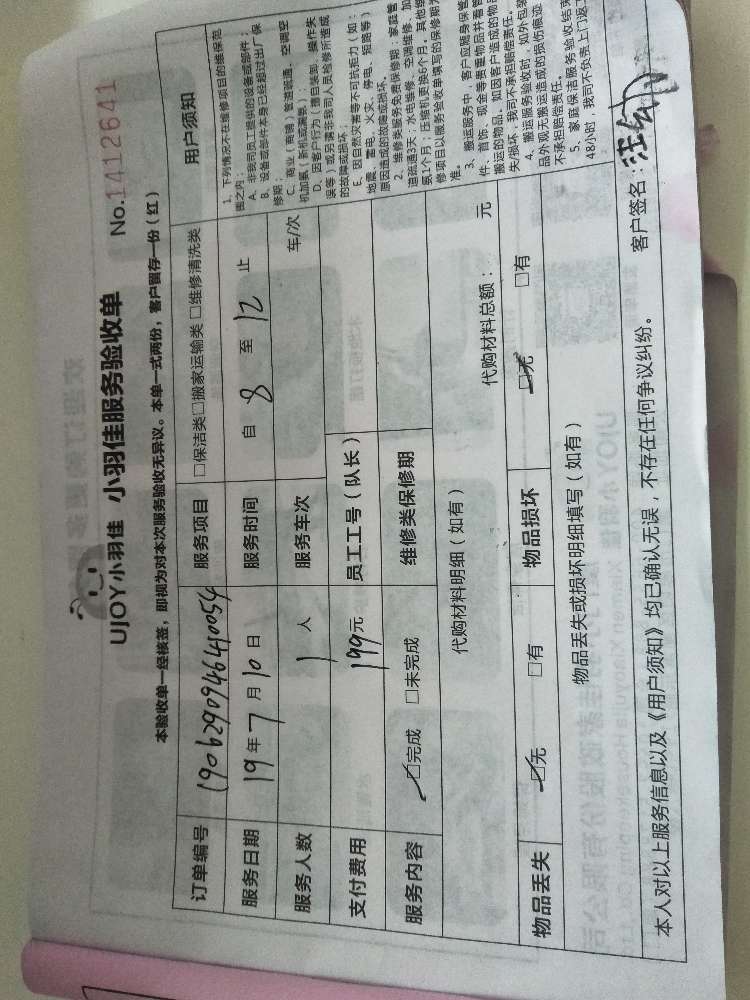 UJOY小羽佳 小羽佳服务验收单 No.1412641
本验收单一经核签，即视为对本次服务验收无异议。本单一式两份，客户留存一份（红）
订单编号 服务项目 □保洁类□搬家运输类 □维修清洗类 用户须知
服务日期 19年7月10日 服务时间 自 8 至 12 止
服务人数 1 人 服务车次 车/次
支付费用 199元 员工工号（队长）
服务内容 □完成 □未完成 维修类保修期
代购材料明细（如有） 代购材料总额： 元
物品丢失 □无 □有 物品损坏 □无 □有
物品丢失或损坏明细填写（如有）
1、下列情况不在维修项目的维保范
围之内：
A、非我司员工提供的设备或部件；
B、设备或部件本身已经超过出厂保
修期；
C、商业（商铺）管道疏通、空调空
机加氟（新机或满氟）；
D、因客户行为（擅自装卸、操作失
误等）或另请非我司人员检修所造成
的故障或损坏；
E、因自然灾害等不可抗拒力（如：
地震、雷电、火灾、停电、短路等）
原因造成的故障或损坏。
2、维修类服务免费保修期：家庭管
道疏通3天；水电维修、空调维修、加
氨1个月；压缩机更换6个月。其他维
修项目以服务验收单填写的保修期为
准。
3、搬运服务中，客户应随身保管
件、首饰、现金等贵重物品并看管
搬运的物品，如因客户造成的物品
失/损坏，我司不承担赔偿责任。
4、搬运服务验收时，如外包装
品外观无搬运造成的损伤痕迹
不承担赔偿责任。
5、家庭保洁服务验收结束
48小时，我司不负责上门返工
本人对以上服务信息以及《用户须知》均已确认无误，不存在任何争议纠纷。 客户签名：